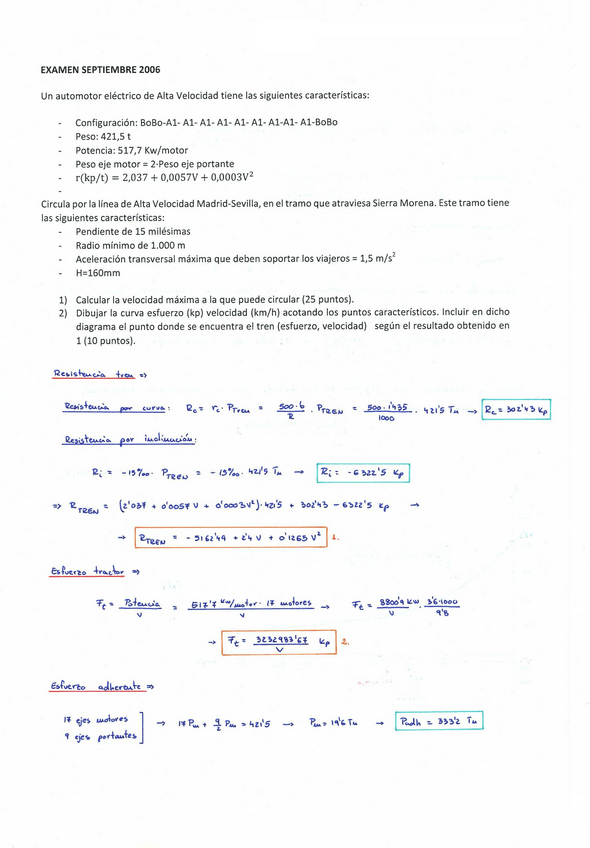 EXAMEN SEPTIEMBRE 2006
Un automotor eléctrico de Alta Velocidad tiene las siguientes características:
- Configuración: BoBo-A1- A1- A1- A1- A1- A1- A1-A1- A1-BoBo
- Peso: 421,5 t
- Potencia: 517,7 Kw/motor
- Peso eje motor = 2·Peso eje portante
- r(kp/t) = 2,037 + 0,0057V + 0,0003V²
-
Circula por la línea de Alta Velocidad Madrid-Sevilla, en el tramo que atraviesa Sierra Morena. Este tramo tiene
las siguientes características:
- Pendiente de 15 milésimas
- Radio mínimo de 1.000 m
- Aceleración transversal máxima que deben soportar los viajeros = 1,5 m/s²
- H=160mm
1) Calcular la velocidad máxima a la que puede circular (25 puntos).
2) Dibujar la curva esfuerzo (kp) velocidad (km/h) acotando los puntos característicos. Incluir en dicho
diagrama el punto donde se encuentra el tren (esfuerzo, velocidad) según el resultado obtenido en
1 (10 puntos).
Resistencia tren ⇒
Resistencia por curva: Rc = rc · PTREN = 500·b/R · PTREN = 500·1'435/1000 · 421'5 Tu → Rc = 302'43 Kp
Resistencia por inclinación:
Ri = -15‰ · PTREN = -15‰ · 421'5 Tu → Ri = -6322'5 Kp
⇒ RTREN = (2'037 + 0'0057 V + 0'0003V²)·421'5 + 302'43 - 6322'5 Kp →
→ RTREN = -5162'49 + 2'4 V + 0'1265 V² 1.
Esfuerzo tractor ⇒
Ft = Potencia/V = 517'7 Kw/motor · 17 motores/V → Ft = 8800'9 KW/V · 3'6·1000/9'8
→ Ft = 3232983'67/V Kp 2.
Esfuerzo adherente ⇒
17 ejes motores
9 ejes portantes ] → 17 Pm + 9/2 Pm = 421'5 → Pm = 19'6 Tu → Padh = 333'2 Tu